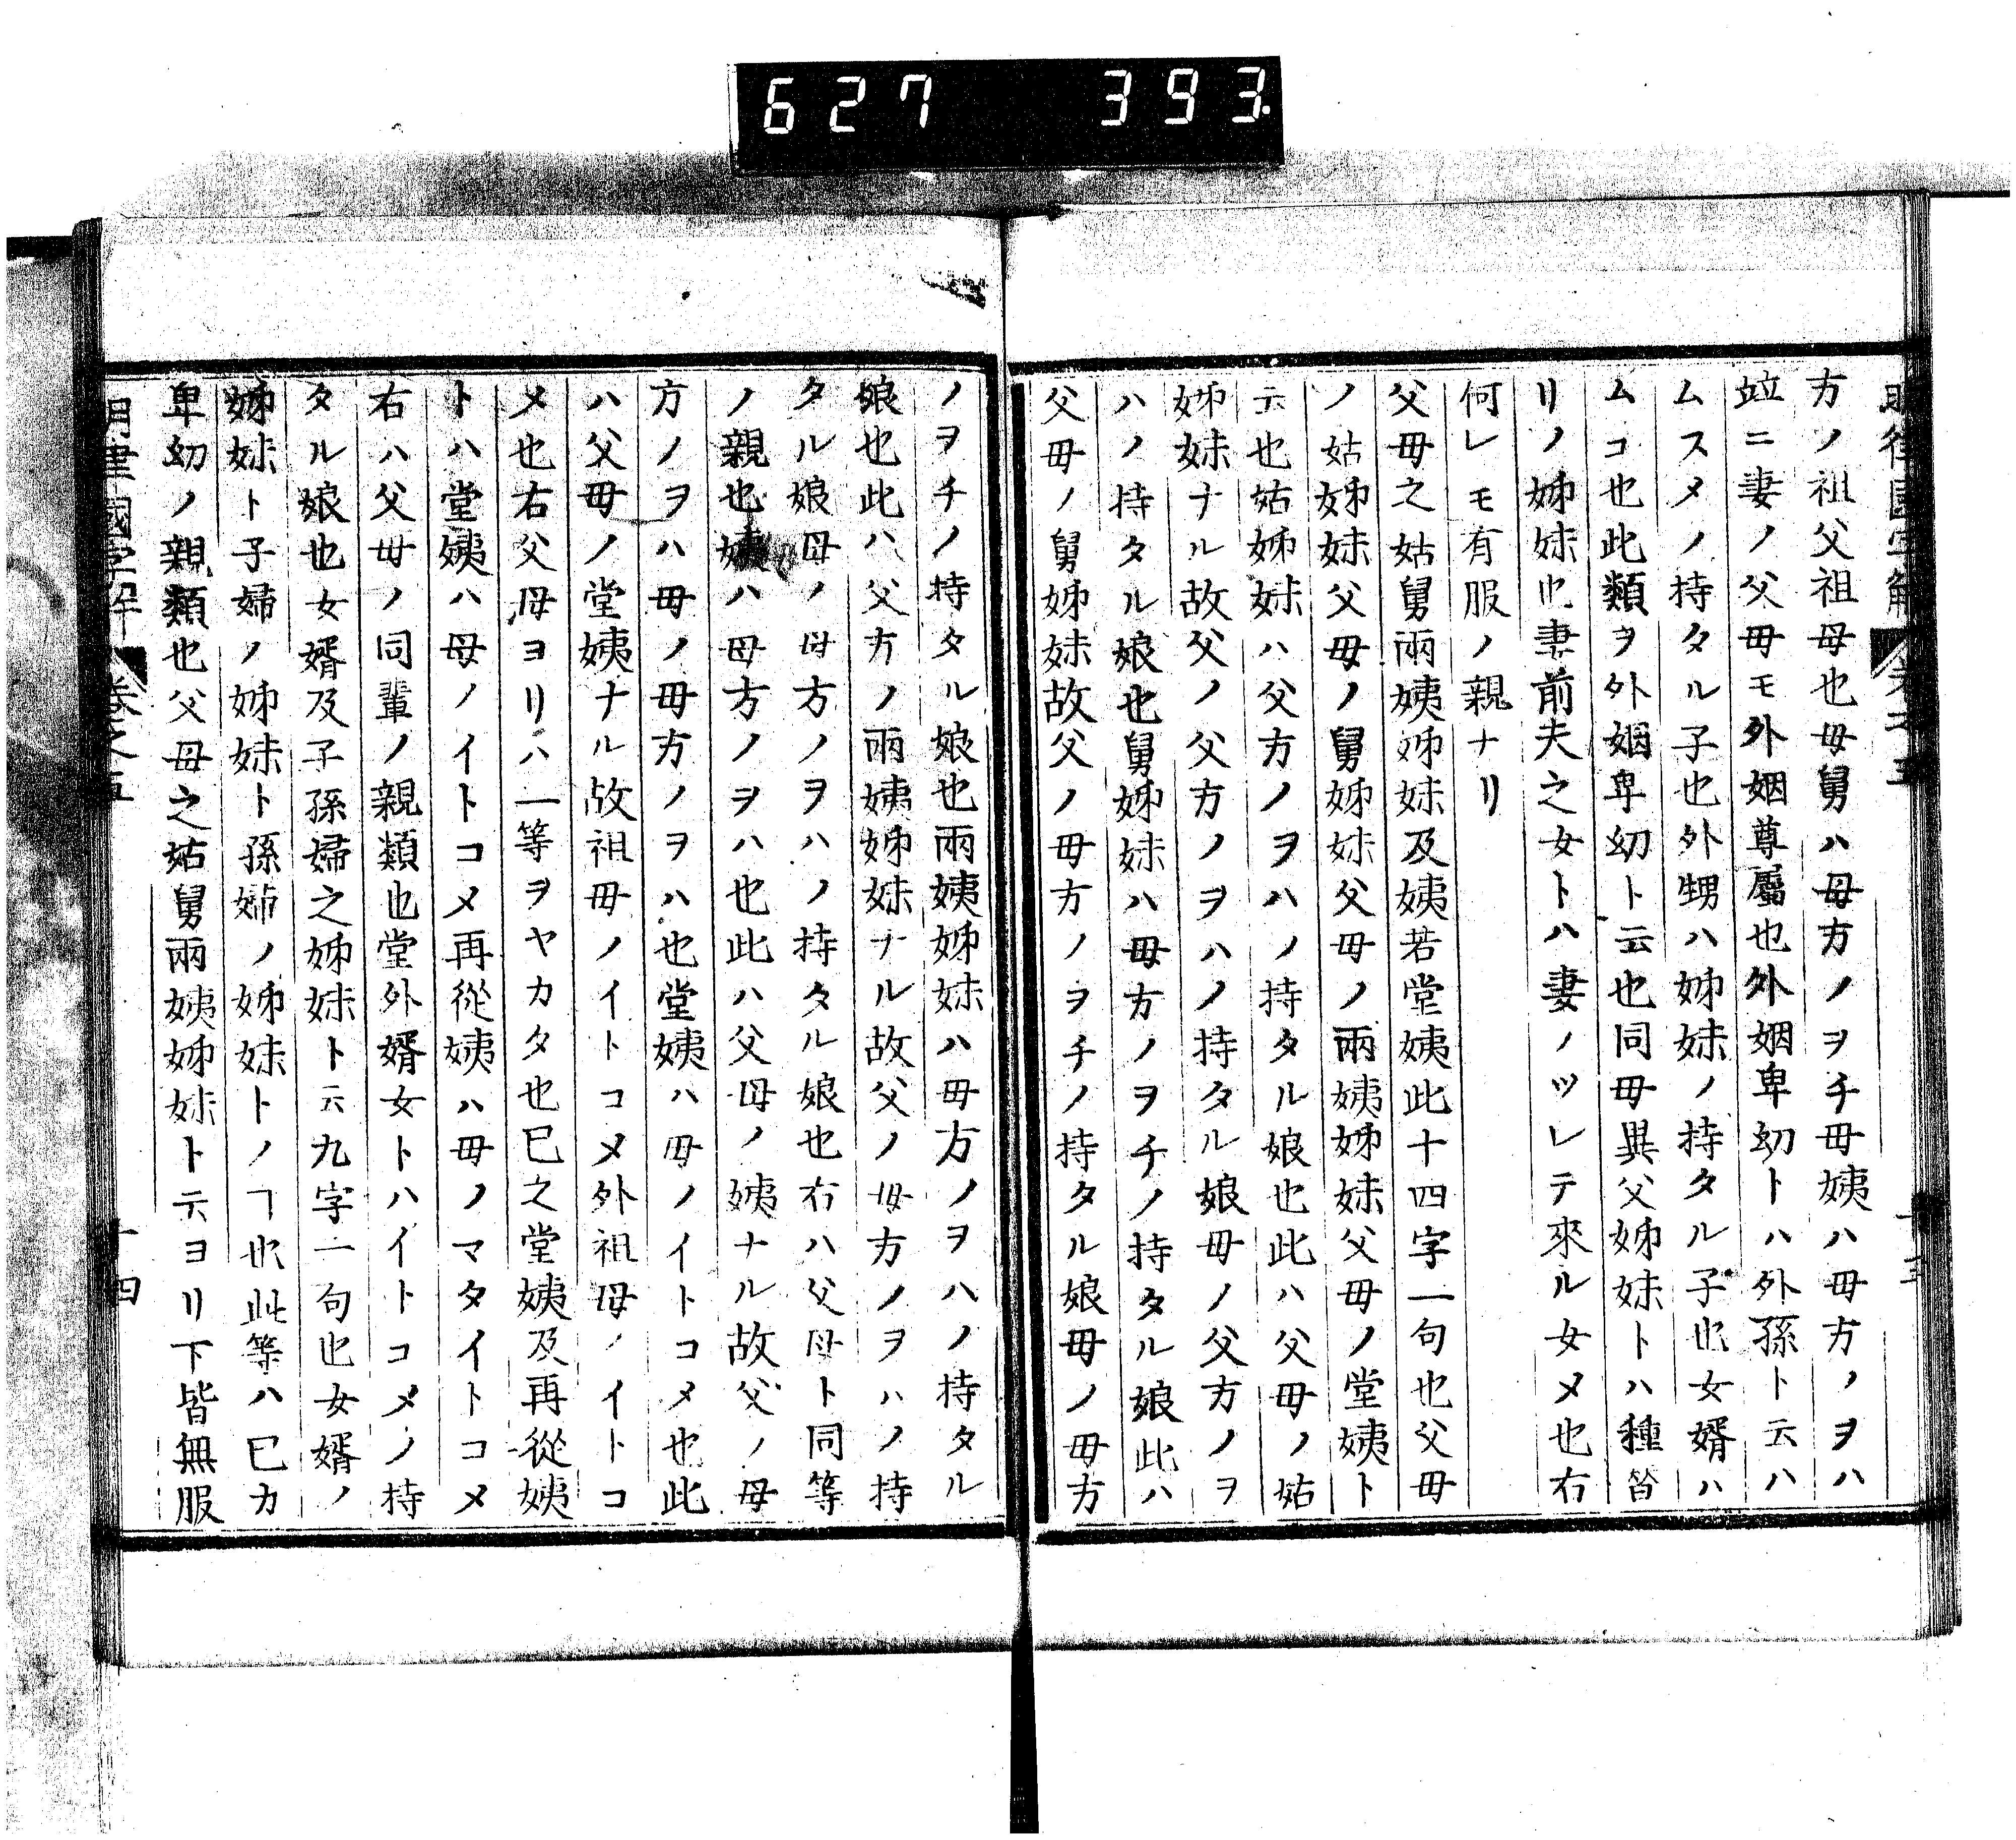 627 393.
方ノ祖父祖母也母舅ハ母方ノヲチ母姨ハ母方ノヲハ
竝ニ妻ノ父母モ外姻尊屬也外姻卑幼トハ外孫ト云ハ
ムスメノ持タル子也外甥ハ姉妹ノ持タル子也女婿ハ
ムコ也此類ヲ外姻卑幼ト云也同母異父姊妹トハ種替
リノ姊妹也妻前夫之女トハ妻ノツレテ來ル女メ也右
何レモ有服ノ親ナリ
父母之姑舅兩姨姊妹及姨若堂姨此十四字一句也父母
ノ姑姊妹父母ノ舅姊妹父母ノ兩姨姊妹父母ノ堂姨ト
云也姑姊妹ハ父方ノヲハノ持タル娘也此ハ父母ノ姑
姊妹ナル故父ノ父方ノヲハノ持タル娘母ノ父方ノヲ
ハノ持タル娘也舅姊妹ハ母方ノヲチノ持タル娘此ハ
父母ノ舅姊妹故父ノ母方ノヲチノ持タル娘母ノ母方
ノヲチノ持タル娘也兩姨姊妹ハ母方ノヲハノ持タル
娘也此ハ父方ノ兩姨姊妹ナル故父ノ母方ノヲハノ持
タル娘母ノ母方ノヲハノ持タル娘也右ハ父母ト同等
ノ親也姨ハ母方ノヲハ也此ハ父母ノ姨ナル故父ノ母
方ノヲハ母ノ母方ノヲハ也堂姨ハ母ノイトコメ也此
ハ父母ノ堂姨ナル故祖母ノイトコメ外祖母ノイトコ
メ也右父母ヨリハ一等ヲヤカタ也已之堂姨及再從姨
トハ堂姨ハ母ノイトコメ再從姨ハ母ノマタイトコメ
右ハ父母ノ同輩ノ親類也堂外婿女トハイトコメノ持
タル娘也女婿及子孫婦之姊妹ト云九字一句也女婿ノ
姊妹ト子婦ノ姊妹ト孫婦ノ姊妹トノヿ也此等ハ已カ
卑幼ノ親類也父母之姑舅兩姨姊妹ト云ヨリ下皆無服
明律國字解 卷之五 十四